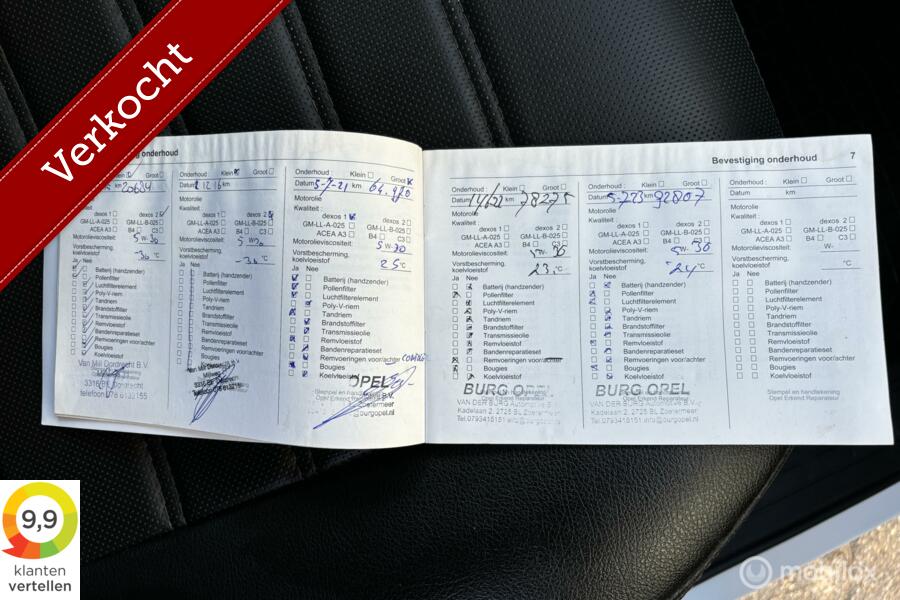 Verkocht
ing onderhoud
Klein Groot
km 20684
Motorolie
Kwaliteit:
dexos 1 dexos 2
GM-LL-A-025 GM-LL-B-025
ACEA A3 B4 C3
Motorolieviscositeit: 5 W-30
Vorstbescherming,
koelvloeistof -30 °C
Ja Nee
Batterij (handzender)
Pollenfilter
Luchtfilterelement
Poly-V-riem
Tandriem
Brandstoffilter
Transmissieolie
Remvloeistof
Bandenreparatieset
Remvoeringen voor/achter
Bougies
Koelvloeistof
Van Mill Dordrecht B.V.
telefoon 078 6133155
Onderhoud: Klein Groot
Datum km
Motorolie
dexos 1 dexos 2
GM-LL-A-025 GM-LL-B-025
ACEA A3 B4 C3
5 W-30
-30 °C
Ja Nee
Batterij (handzender)
Pollenfilter
Luchtfilterelement
Poly-V-riem
Tandriem
Brandstoffilter
Transmissieolie
Remvloeistof
Bandenreparatieset
Remvoeringen voor/achter
Bougies
Koelvloeistof
Onderhoud: Klein Groot
Datum 5-7-21 km 64.920
Motorolie
Kwaliteit:
dexos 1 dexos 2
GM-LL-A-025 GM-LL-B-025
ACEA A3 B4 C3
Motorolieviscositeit: 5 W-30
Vorstbescherming,
koelvloeistof 25 °C
Ja Nee
Batterij (handzender)
Pollenfilter
Luchtfilterelement
Poly-V-riem
Tandriem
Brandstoffilter
Transmissieolie
Remvloeistof
Bandenreparatieset
Remvoeringen voor/achter
Bougies
Koelvloeistof
OPEL
burgopel.nl
Bevestiging onderhoud 7
Onderhoud: Klein Groot
Datum km 78275
Motorolie
Kwaliteit:
dexos 1 dexos 2
GM-LL-A-025 GM-LL-B-025
ACEA A3 B4 C3
Motorolieviscositeit: 5W-30
Vorstbescherming,
koelvloeistof 23 °C
Ja Nee
Batterij (handzender)
Pollenfilter
Luchtfilterelement
Poly-V-riem
Tandriem
Brandstoffilter
Transmissieolie
Remvloeistof
Bandenreparatieset
Remvoeringen voor/achter
Bougies
Koelvloeistof
BURG OPEL
VAN DER BURG
Kadelaan 2, 2725 BL Zoetermeer
Tel.0793416151
Onderhoud: Klein Groot
Datum 5-723 km 92807
Motorolie
Kwaliteit:
dexos 1 dexos 2
GM-LL-A-025 GM-LL-B-025
ACEA A3 B4 C3
Motorolieviscositeit: 5W-30
Vorstbescherming,
koelvloeistof -24 °C
Ja Nee
Batterij (handzender)
Pollenfilter
Luchtfilterelement
Poly-V-riem
Tandriem
Brandstoffilter
Transmissieolie
Remvloeistof
Bandenreparatieset
Remvoeringen voor/achter
Bougies
Koelvloeistof
BURG OPEL
VAN DER BURG
Kadelaan 2, 2725 BL Zoetermeer
Tel.0793416151 info@burgopel.nl
Onderhoud: Klein Groot
Datum km
Motorolie
Kwaliteit:
dexos 1 dexos 2
GM-LL-A-025 GM-LL-B-025
ACEA A3 B4 C3
Motorolieviscositeit: W-
Vorstbescherming,
koelvloeistof °C
Ja Nee
Batterij (handzender)
Pollenfilter
Luchtfilterelement
Poly-V-riem
Tandriem
Brandstoffilter
Transmissieolie
Remvloeistof
Bandenreparatieset
Remvoeringen voor/achter
Bougies
Koelvloeistof
Stempel en handtekening
Opel Erkend Reparateur
9,9
klanten
vertellen
mobilox